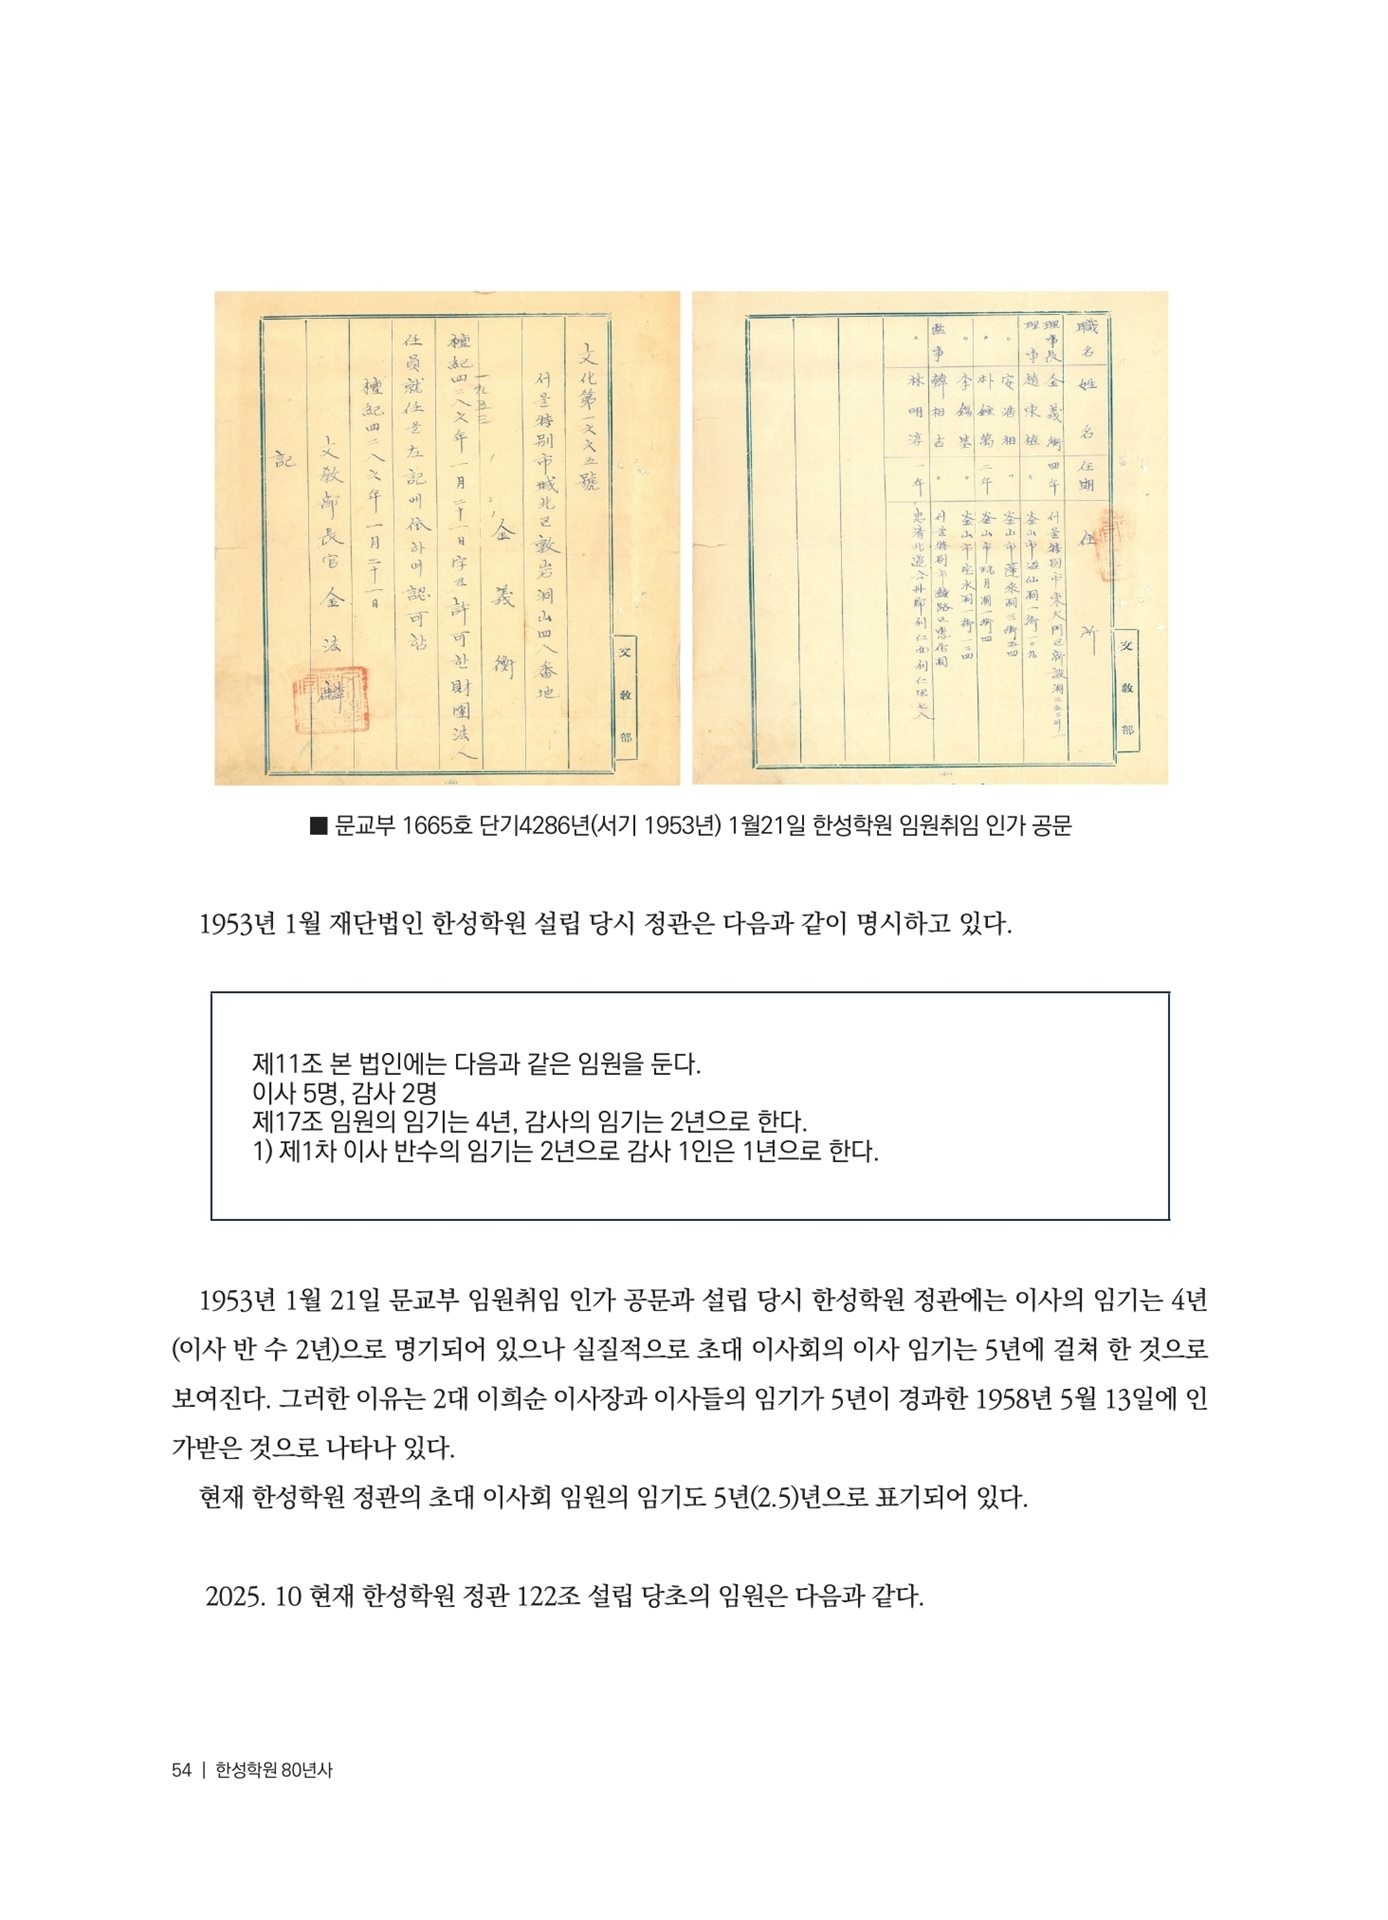 文化第一六六五號
서울特別市城北區敦岩洞山四八番地
金義衡
一九五三
檀紀四二八六年一月二十一日字로許可한財團法人
任員就任을左記에依하여認可함
檀紀四二八六年一月二十一日
文敎部長官金法麟
記
文敎部
職名 姓名 任期 住所
理事長 金義衡 四年 서울特別市東大門區新設洞
理事 趙東植 〃 釜山市
〃 安浩相 〃 釜山市蓬萊洞三街五四
〃 朴鍾萬 二年 釜山市
〃 李錫基 〃 釜山市
監事 韓相吉 〃 서울特別市鍾路區惠化洞
〃 林明淳 一年 忠淸北道
文敎部
■ 문교부 1665호 단기4286년(서기 1953년) 1월21일 한성학원 임원취임 인가 공문
1953년 1월 재단법인 한성학원 설립 당시 정관은 다음과 같이 명시하고 있다.
제11조 본 법인에는 다음과 같은 임원을 둔다.
이사 5명, 감사 2명
제17조 임원의 임기는 4년, 감사의 임기는 2년으로 한다.
1) 제1차 이사 반수의 임기는 2년으로 감사 1인은 1년으로 한다.
1953년 1월 21일 문교부 임원취임 인가 공문과 설립 당시 한성학원 정관에는 이사의 임기는 4년
(이사 반 수 2년)으로 명기되어 있으나 실질적으로 초대 이사회의 이사 임기는 5년에 걸쳐 한 것으로
보여진다. 그러한 이유는 2대 이희순 이사장과 이사들의 임기가 5년이 경과한 1958년 5월 13일에 인
가받은 것으로 나타나 있다.
현재 한성학원 정관의 초대 이사회 임원의 임기도 5년(2.5)년으로 표기되어 있다.
2025. 10 현재 한성학원 정관 122조 설립 당초의 임원은 다음과 같다.
54 | 한성학원 80년사